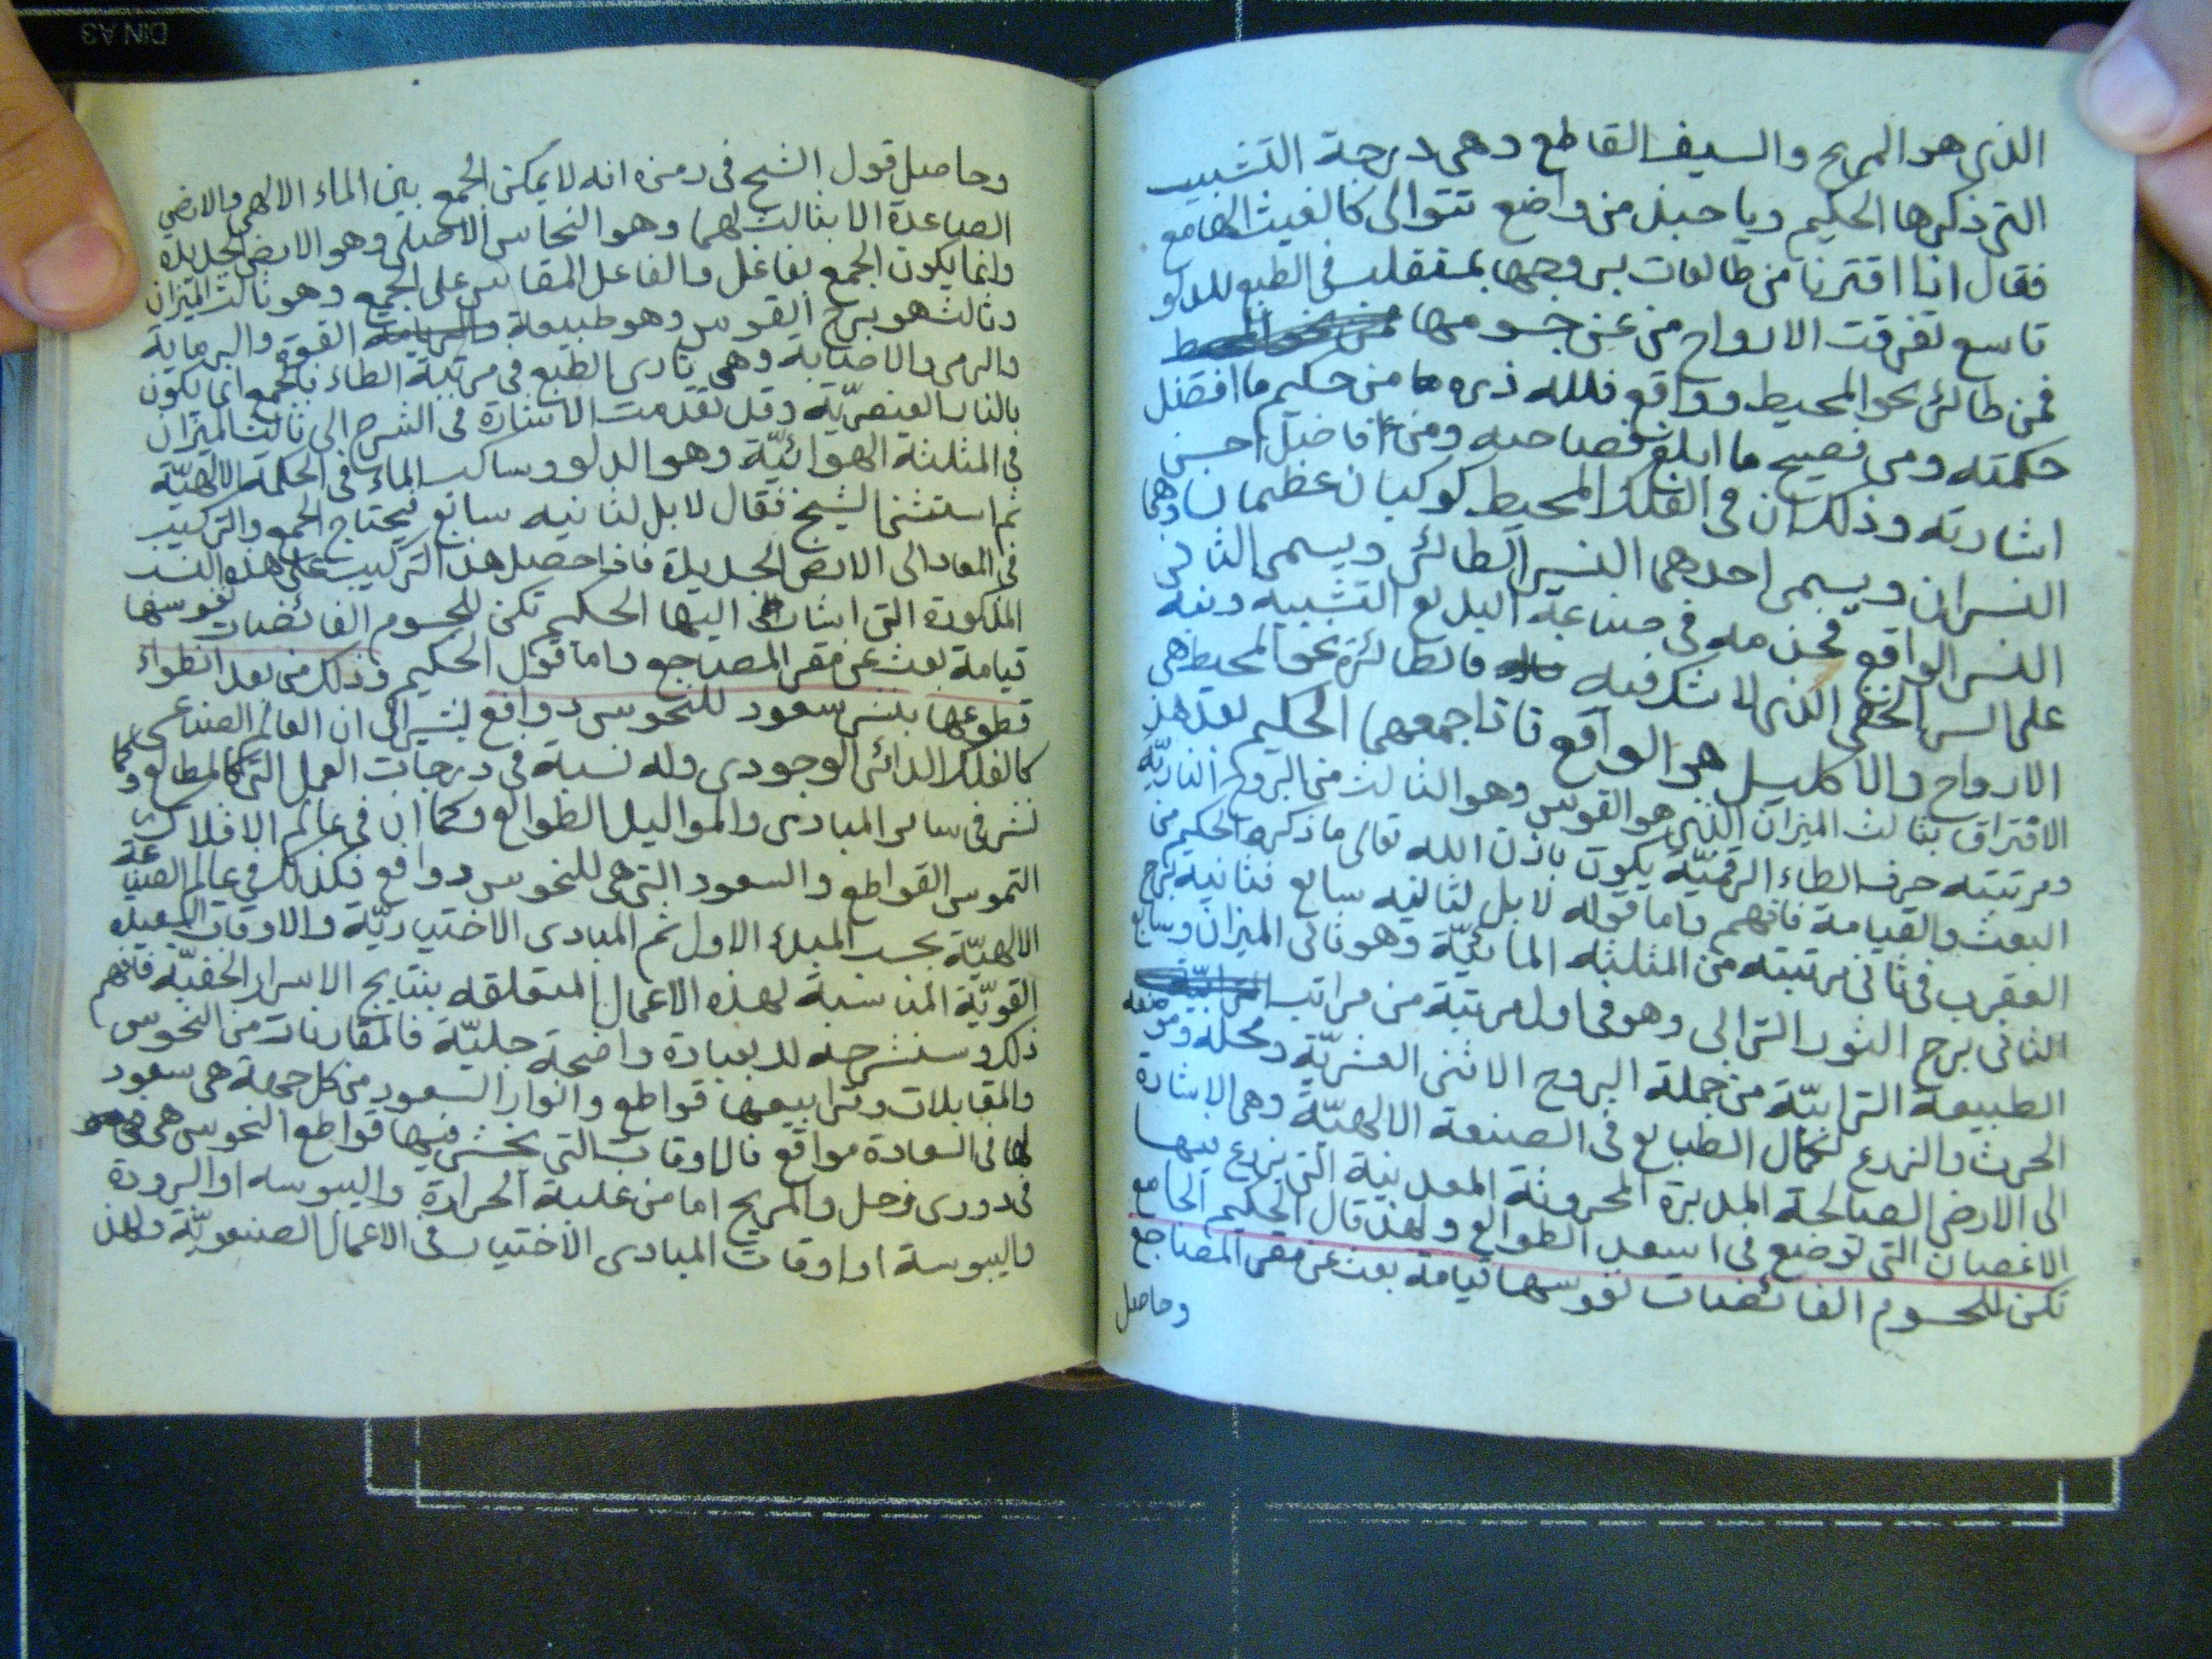 DIN A3
الذى هو المريح والسيف القاطع وهى درجة التشبيب
التى ذكرها الحكيم ويا حبذ من واضع تتوالى كالغيث الهامع
فقال اذا اقترنا من طالعات بروجها بمنقلب فى الطبع للدلو
تاسع تفرقت الارواح من عن جسومها
فمن طائر نحو المحيط وواقع فلله دره من حكيم ما افضل
حكمته ومن فصيح ما ابلغ فصاحبه ومن فاضل احسن
اشارته وذلك ان فى الفلك المحيط كوكبان عظيمان وهما
النسران ويسمى احدهما النسر الطائر ويسمى الثانى
النسر الواقع فخذ منه فى صناعة البديع التشبيه ونبه
على السر الخفى الذى لا شك فيه فالطائرة نحو المحيط هى
الارواح والاكليل هو الواقع فاذا جمعهما الحكيم بعد هذا
الافتراق بثالث الميزان الذى هو القوس وهو الثالث من البروج الناريّة
ومرتبته حرف الطاء الرقميّة يكون باذن الله تعالى ما ذكره الحكيم من
البعث والقيامة فافهم واما قوله لا بل لثانيه سابع فثانيه برج
العقرب فى ثانى مرتبته من المثلثه المائيّة وهو ثانى الميزان وسابع
الثانى برج الثور الترابى وهو فى اول مرتبة من مراتب
الطبيعة الترابيّة من جملة البروج الاثنى العشريّة ومحله وموضعه
الحرث والزرع لكمال الطبايع فى الصنعة الالهيّة وهى الاشارة
الى الارض الصالحة المدبرة المحروثة المعدنية التى يزرع فيها
الاغصان التى توضع فى اسعد الطوالع ولهذا قال الحكيم الجامع
تكن للجسوم الفائضات نفوسها قيامة بعث عن مقر المضاجع
وحاصل
وحاصل قول الشيخ فى رمزه انه لا يمكن الجمع بين الماء الالهى والارض
الصاعدة الا بثالث لهما وهو النحاس الاصلى وهو الارض الجديدة
وانما يكون الجمع بفاعل والفاعل المقاس على الجمع وهو ثالث الميزان
وثالثه هو برج القوس وهو طبيعة القوة والبرماية
والرمى والاصابة وهى نارى الطبع فى مرتبة الطاء فالجمع انما يكون
بالنار العنصريّة وقد تقدمت الاشارة فى الشرح الى ثالث الميزان
فى المثلثة الهوائيّة وهو الدلو وساكب الماء فى الحكمة الالهيّة
ثم استثنى الشيخ فقال لا بل لثانيه سابع فيحتاج الجمع والتركيب
فى المعاد الى الارض الجديدة فاذا حصل هذا التركيب على هذه النسب
المذكورة التى اشار اليها الحكيم تكن للجسوم الفائضات نفوسها
قيامة بعث عن مقر المضاجع واما قول الحكيم وذلك من بعد انطواء
قطوعها بنشر سعود للنحوس دوافع يشير الى ان العالم الصناعى
كالفلك الدائر الوجودى وله نسبة فى درجات العمل التى كالمطالع وكما
نشر فى ساير المبادى والمواليد الطوالع وكما ان فى عالم الافلاك
النحوس القواطع والسعود التى هى للنحوس دوافع فكذلك فى عالم الصناعة
الالهيّة بحسب المبدء الاول ثم المبادى الاختياريّة والاوقات السعيدة
القويّة المناسبة لهذه الاعمال المتعلقه بنتايج الاسرار الخفيّة فافهم
ذلك وسنشرحه لك بعبارة واضحة جليّة فالمقارنات من النحوس
والمقابلات وترابيعها قواطع وانوار السعود من كل جهة هى سعود
لها فى السعادة مواقع فالاوقات التى يخشى فيها قواطع النحوس هى
فى دورى زحل والمريح اما من غلبة الحرارة واليبوسه او البرودة
واليبوسة او اوقات المبادى الاختيار فى الاعمال الصنعويّة ولهذا